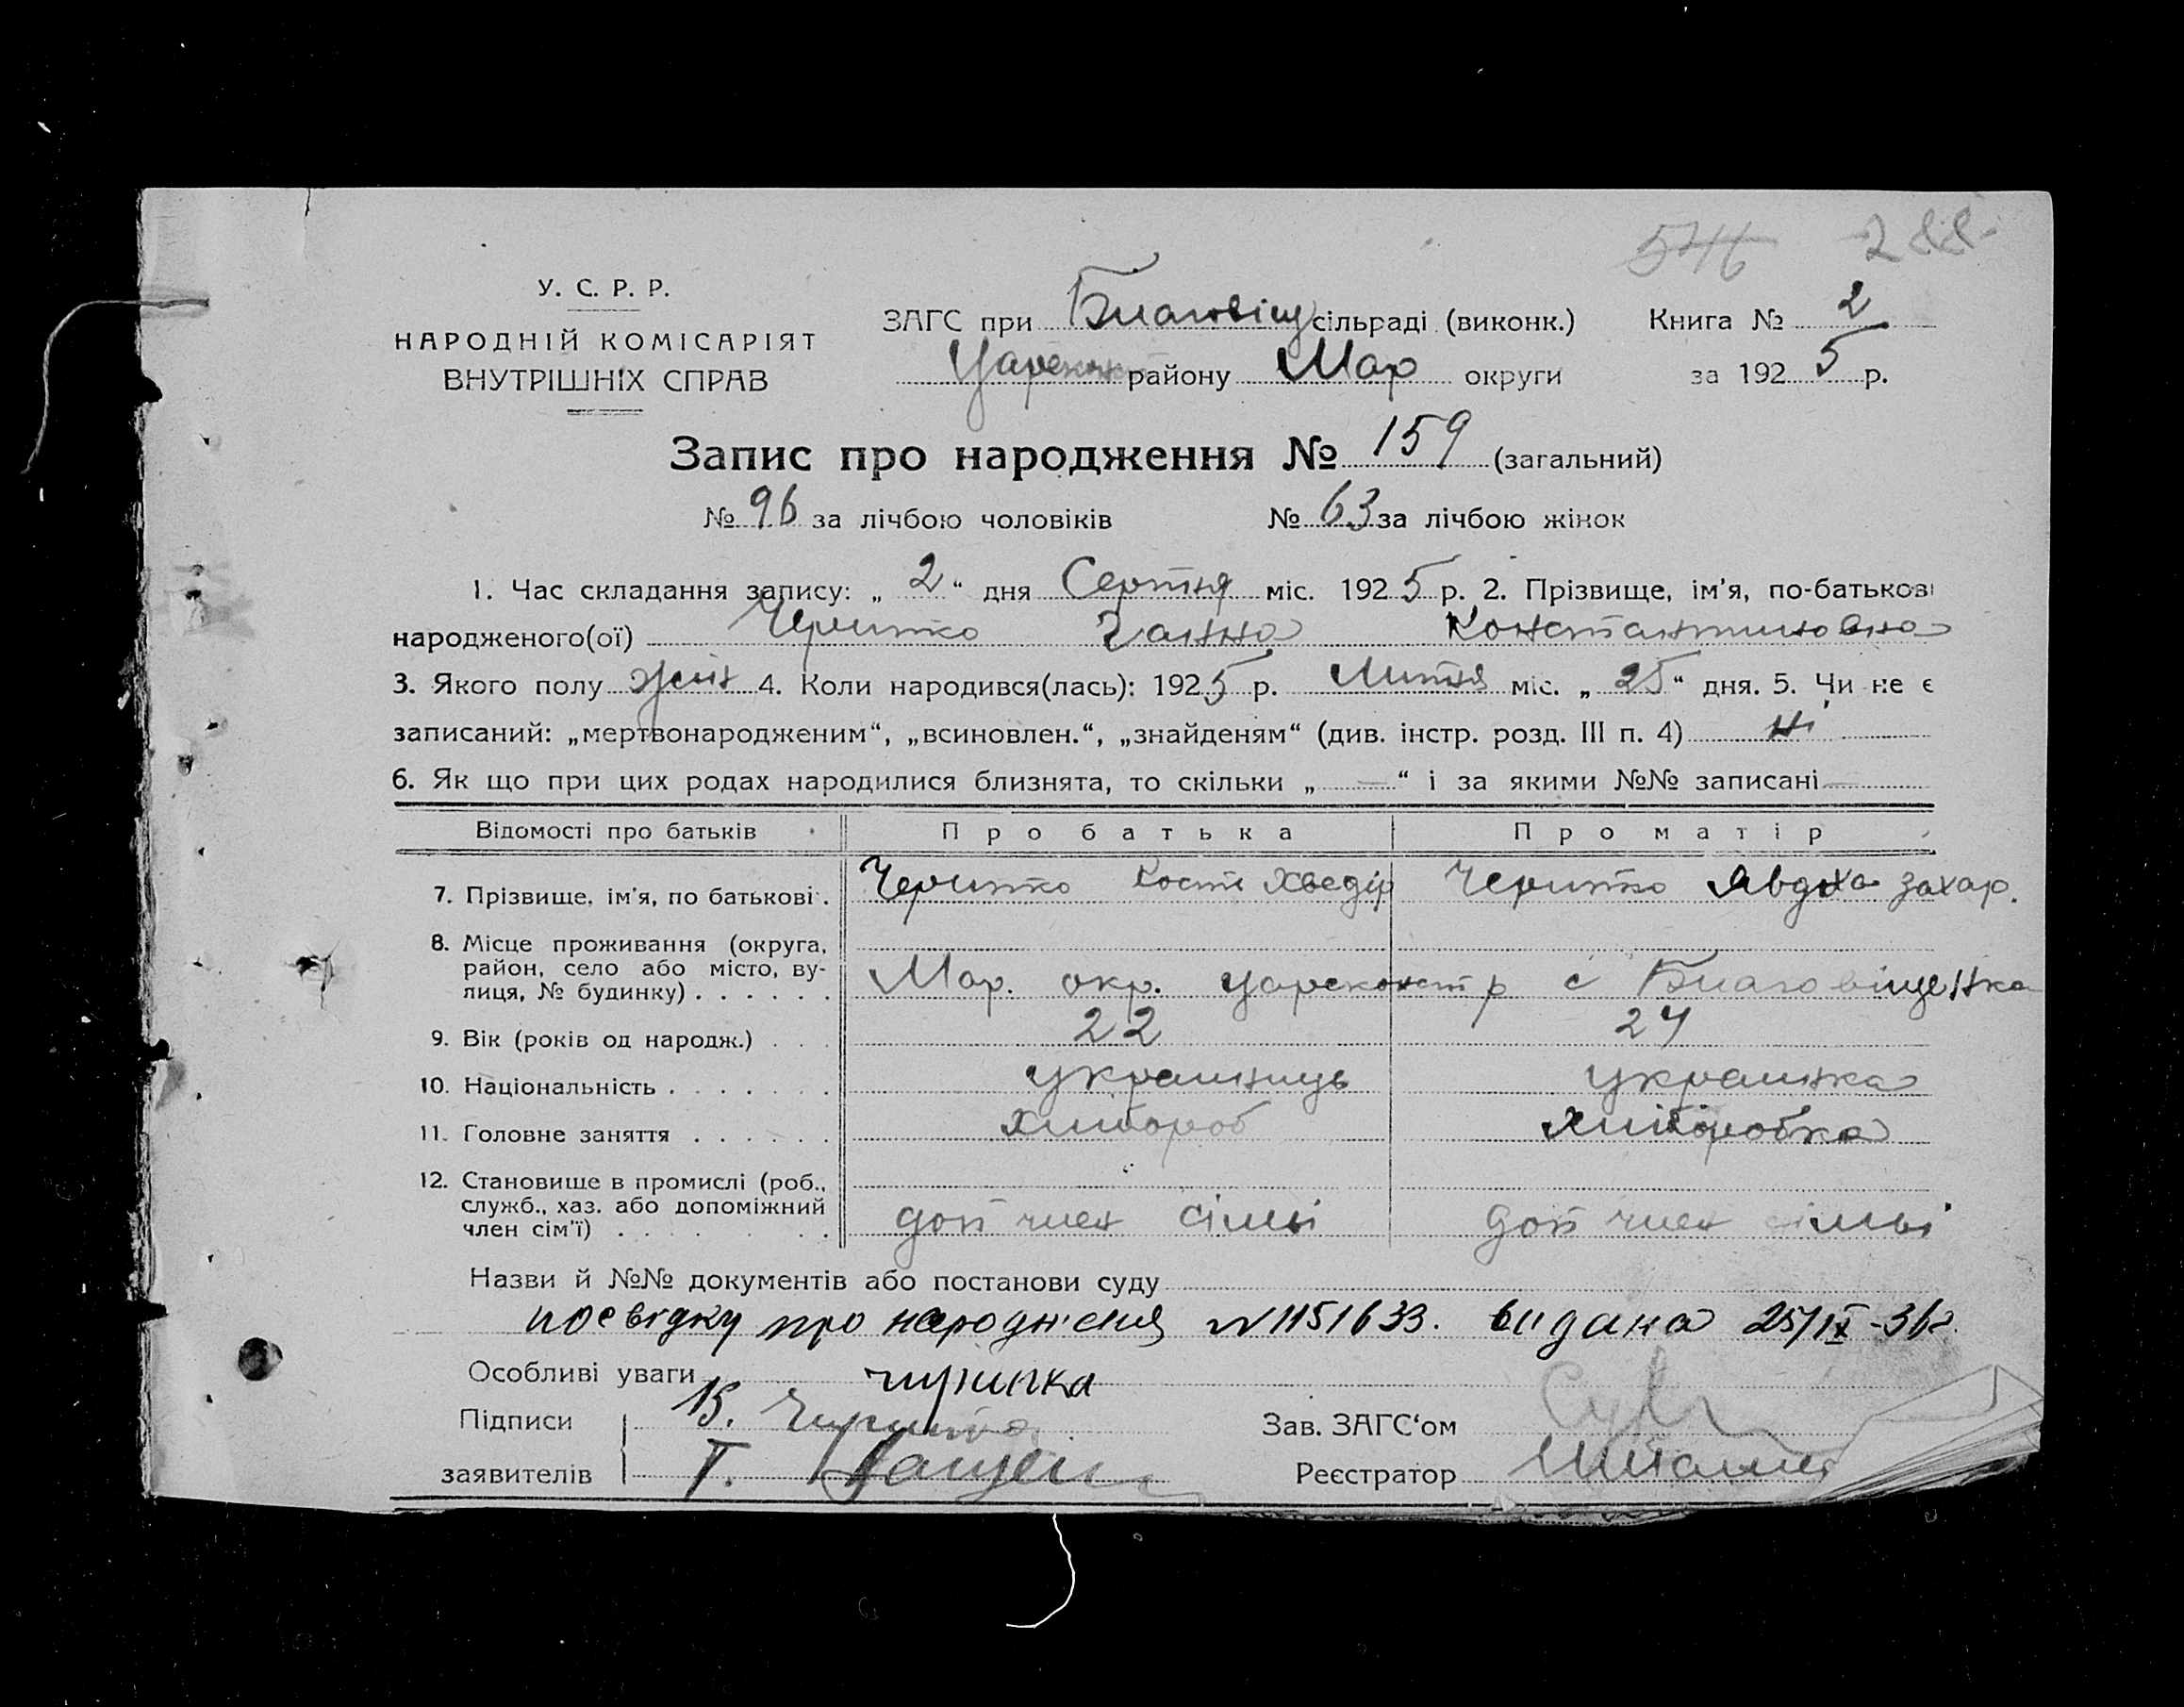 546 288
У. С. Р. Р.
НАРОДНІЙ КОМІСАРІЯТ
ВНУТРІШНІХ СПРАВ
ЗАГС при Благовіщ сільраді (виконк.) Книга № 2
Царекон району Мар округи за 1925 р.
Запис про народження № 159 (загальний)
№ 96 за лічбою чоловіків № 63 за лічбою жінок
1. Час складання запису: „ 2 “ дня Серпня міс. 1925 р. 2. Прізвище, ім’я, по-батькові
народженого(ої) Черипко Ганна Константиновна
3. Якого полу жін 4. Коли народився(лась): 1925 р. Липня міс. „ 25 “ дня. 5. Чи не є
записаний: „мертвонародженим“, „всиновлен.“, „знайденям“ (див. інстр. розд. III п. 4) ні
6. Як що при цих родах народилися близнята, то скільки „ — “ і за якими №№ записані —
Відомості про батьків Про батька Про матір
7. Прізвище, ім’я, по батькові . Черипко Кость Хведір Черипко Явдоха Захар.
8. Місце проживання (округа,
район, село або місто, ву-
лиця, № будинку) . . . . . . Мар. окр. Царсконст р с Благовіщенка
9. Вік (років од народж.) . . . 22 24
10. Національність . . . . . . . украинець украинка
11. Головне заняття . . . . . . Хлибороб Хлиборобка
12. Становище в промислі (роб.,
служб., хаз. або допоміжний
член сім’ї) . . . . . . . доп член сімьі доп член сімьі
Назви й №№ документів або постанови суду
посвідку про народнення N 1151633. видана 25/IX-36г.
Особливі уваги чирипка
Підписи В. Чирипко Зав. ЗАГС‘ом
заявителів Т. Реєстратор